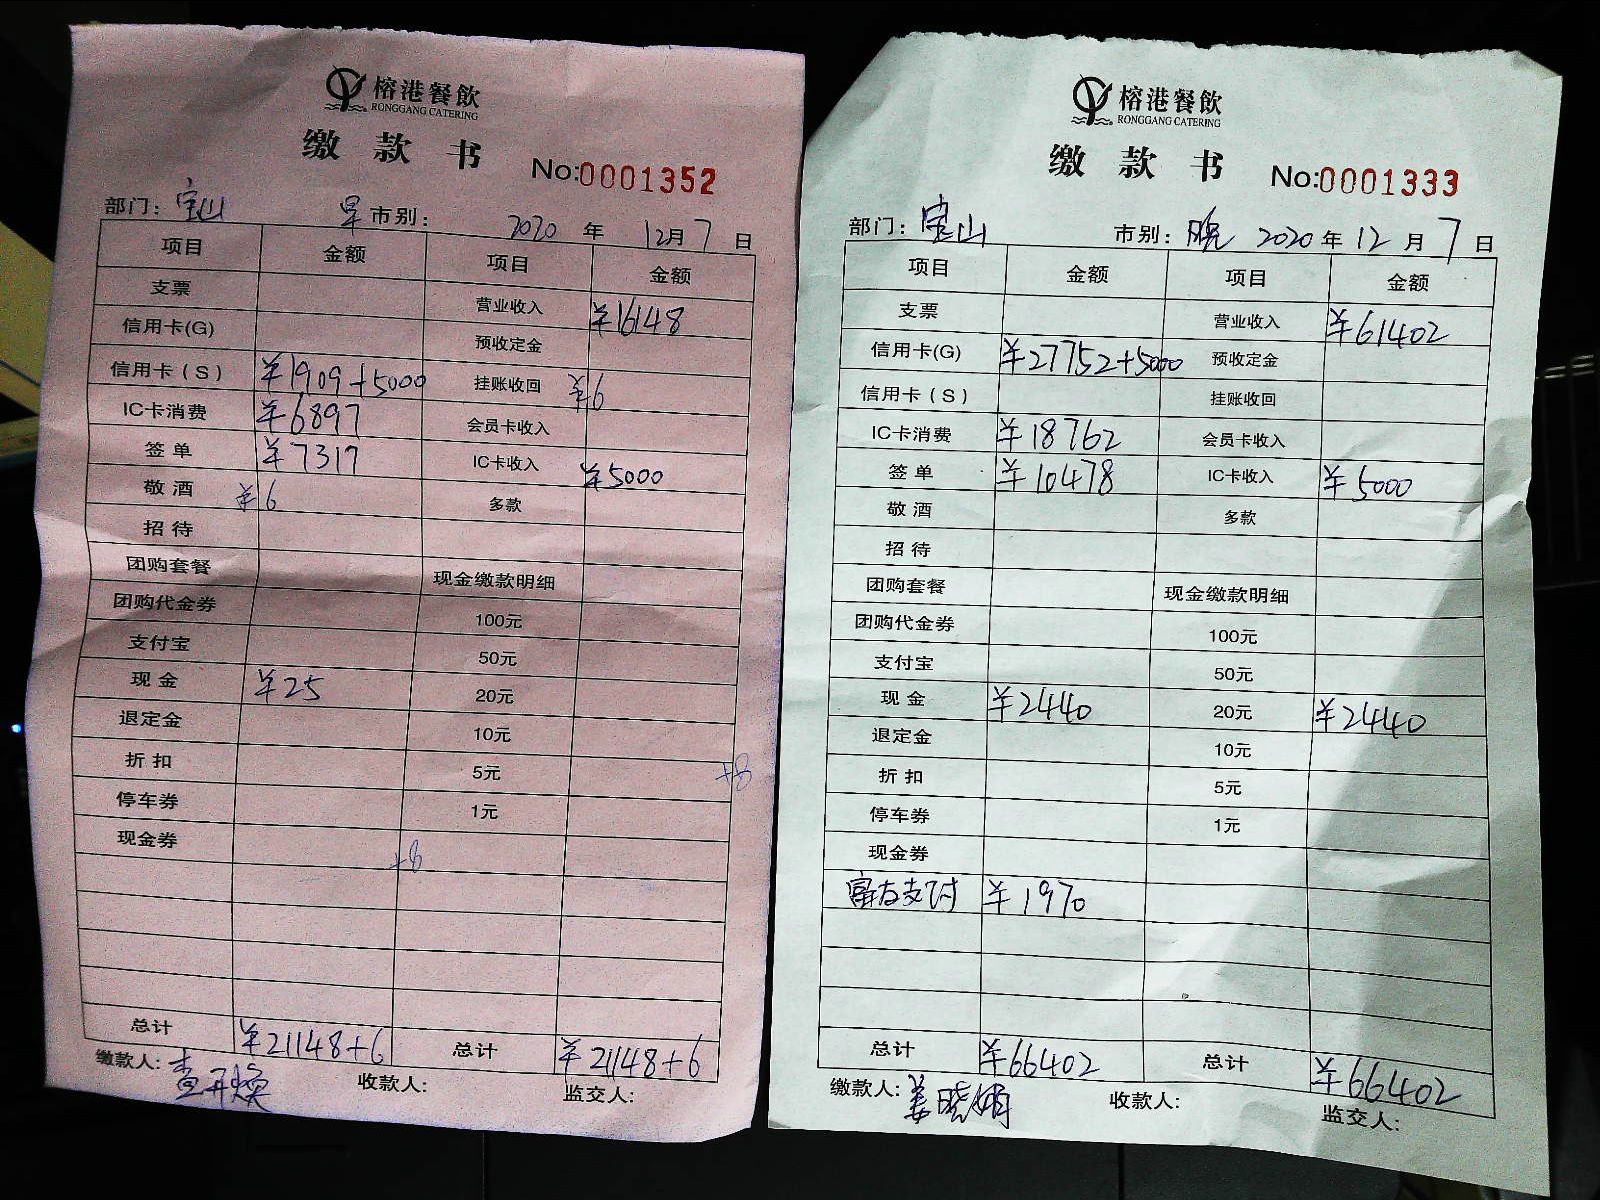 榕港餐飲
RONGGANG CATERING
缴款书 No:0001352
部门: 宝山 早市别: 2020年12月7日
项目 金额 项目 金额
支票 营业收入 ¥16148
信用卡(G) 预收定金
信用卡(S) ¥1909+5000 挂账收回 ¥6
IC卡消费 ¥6897 会员卡收入
签单 ¥7317 IC卡收入 ¥5000
敬酒 ¥6 多款
招待
团购套餐 现金缴款明细
团购代金券 100元
支付宝 50元
现金 ¥25 20元
退定金 10元
折扣 5元 +8
停车券 1元
现金券 +8
总计 ¥21148+6 总计 ¥21148+6
缴款人: 查开焕 收款人: 监交人:
榕港餐飲
RONGGANG CATERING
缴款书 No:0001333
部门: 宝山 市别: 晚 2020年12月7日
项目 金额 项目 金额
支票 营业收入 ¥61402
信用卡(G) ¥27752+5000 预收定金
信用卡(S) 挂账收回
IC卡消费 ¥18762 会员卡收入
签单 ¥10478 IC卡收入 ¥5000
敬酒 多款
招待
团购套餐 现金缴款明细
团购代金券 100元
支付宝 50元
现金 ¥2440 20元 ¥2440
退定金 10元
折扣 5元
停车券 1元
现金券
富友支付 ¥1970
总计 ¥66402 总计 ¥66402
缴款人: 姜晓娟 收款人: 监交人: